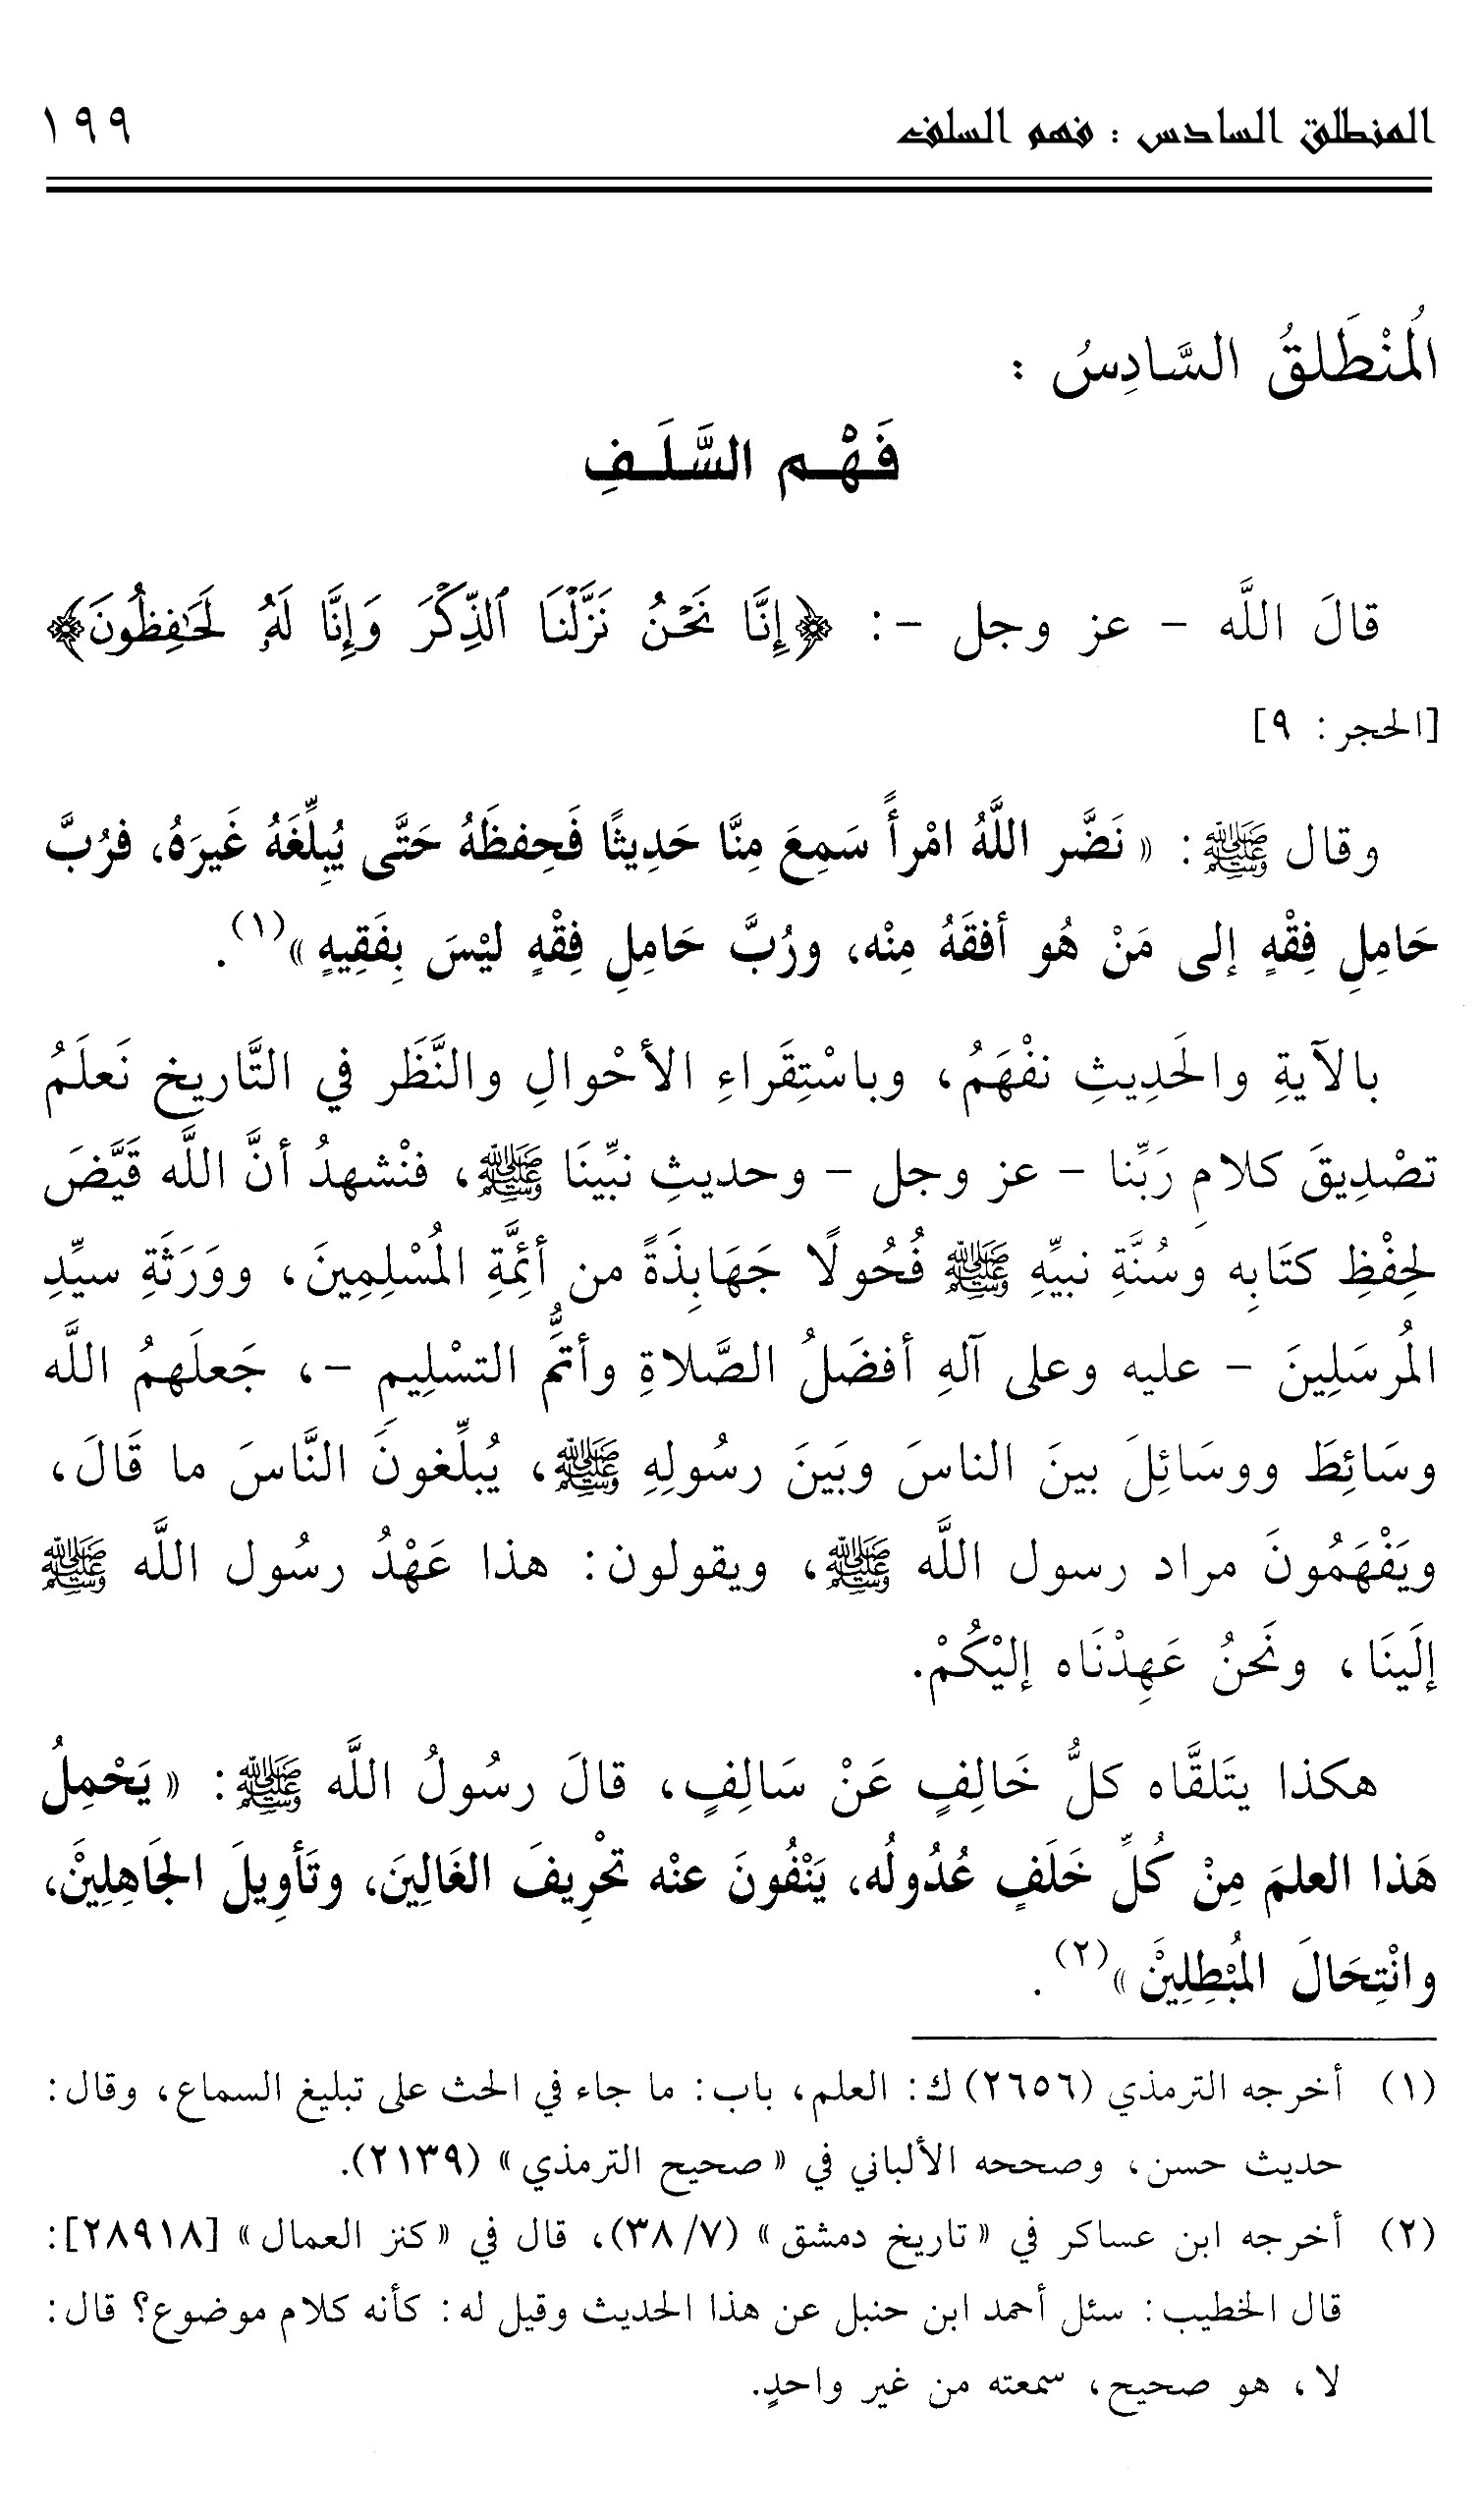 المنطلق السادس : فهم السلف ١٩٩
المُنْطَلقُ السَّادِسُ :
فَهْم السَّلَفِ
قالَ اللَّه - عز وجل -: ﴿إِنَّا نَحْنُ نَزَّلْنَا ٱلذِّكْرَ وَإِنَّا لَهُۥ لَحَـٰفِظُونَ﴾
[الحجر: ٩]
وقال ﷺ: «نَضَّر اللَّهُ امْرأً سَمِعَ مِنَّا حَدِيثًا فَحِفظَهُ حَتَّى يُبلِّغَهُ غَيرَهُ، فرُبَّ
حَامِلِ فِقْهٍ إلى مَنْ هُو أفقَهُ مِنْه، ورُبَّ حَامِلِ فِقْهٍ ليْسَ بِفَقِيهٍ»(١).
بالآيةِ والحَدِيثِ نفْهَمُ، وباسْتِقَراءِ الأحْوالِ والنَّظَر في التَّاريخ نَعلَمُ
تصْدِيقَ كلامِ رَبِّنا - عز وجل - وحديثِ نبِّينَا ﷺ، فنْشهدُ أنَّ اللَّه قَيَّضَ
لحِفْظِ كتَابِه وسُنَّةِ نبيِّهِ ﷺ فُحُولًا جَهَابِذَةً من أئِمَّةِ المُسْلِمِينَ، ووَرَثَةِ سيِّدِ
المُرسَلِينَ - عليه وعلى آلهِ أفضَلُ الصَّلاةِ وأتمُّ التسْلِيم -، جَعلَهمُ اللَّه
وسَائِطَ ووسَائِلَ بينَ الناسَ وبَينَ رسُولِهِ ﷺ، يُبلِّغونَ النَّاسَ ما قَالَ،
ويَفْهَمُونَ مراد رسول اللَّه ﷺ، ويقولون: هذا عَهْدُ رسُول اللَّه ﷺ
إلَينَا، ونَحنُ عَهِدْنَاه إليْكُمْ.
هكذا يتَلقَّاه كلُّ خَالِفٍ عَنْ سَالِفٍ، قالَ رسُولُ اللَّه ﷺ: «يَحْمِلُ
هَذا العلمَ مِنْ كُلِّ خَلَفٍ عُدُولُه، يَنْفُونَ عنْه تحْرِيفَ الغَالِينَ، وتَأوِيلَ الجَاهِلِينَْ،
وانْتِحَالَ المُبْطِلِينَْ»(٢).
(١) أخرجه الترمذي (٢٦٥٦) ك: العلم، باب: ما جاء في الحث على تبليغ السماع، وقال:
حديث حسن، وصححه الألباني في «صحيح الترمذي» (٢١٣٩).
(٢) أخرجه ابن عساكر في «تاريخ دمشق» (٣٨/٧)، قال في «كنز العمال» [٢٨٩١٨]:
قال الخطيب: سئل أحمد ابن حنبل عن هذا الحديث وقيل له: كأنه كلام موضوع؟ قال:
لا، هو صحيح، سمعته من غير واحدٍ.